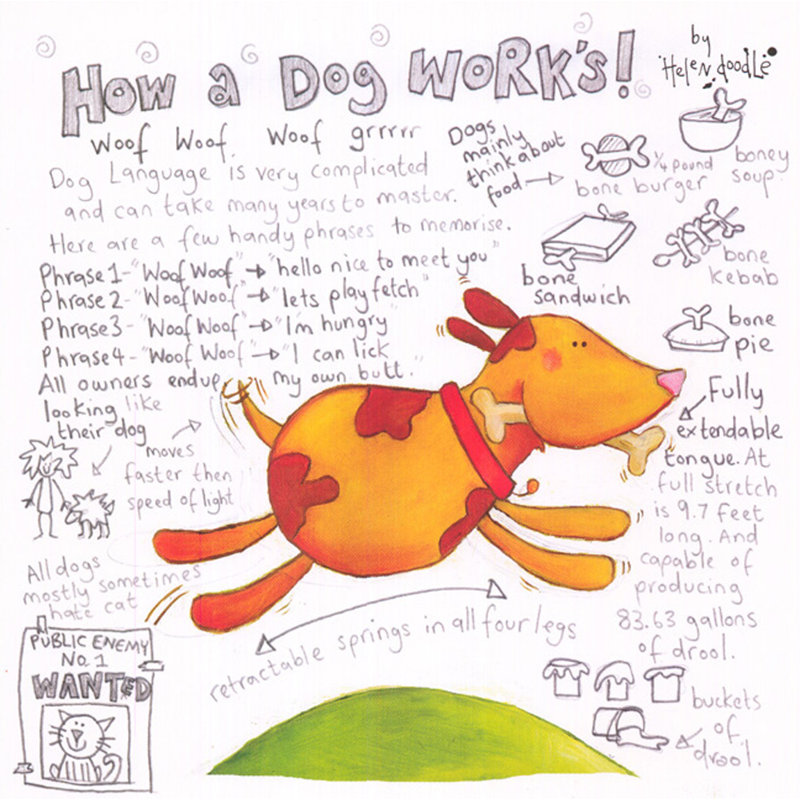 How a Dog Work's!
by
Helen doodle
Woof Woof. Woof grrrrr
Dog Language is very complicated
and can take many years to master.
Here are a few handy phrases to memorise.
Phrase 1 - "Woof Woof" → "hello nice to meet you"
Phrase 2 - "Woof Woof" → "lets play fetch"
Phrase 3 - "Woof Woof" → "I'm hungry"
Phrase 4 - "Woof Woof" → "I can lick
my own butt."
Dogs
mainly
think about
food →
1/4 pound
bone burger
boney
soup.
bone
sandwich
bone
kebab
bone
pie
All owners end up
looking like
their dog
moves
faster then
speed of light
Fully
extendable
tongue. At
full stretch
is 9.7 feet
long. And
capable of
producing
83.63 gallons
of drool.
buckets
of
drool.
retractable springs in all four legs
All dogs
mostly sometimes
hate cat
PUBLIC ENEMY
NO.1
WANTED